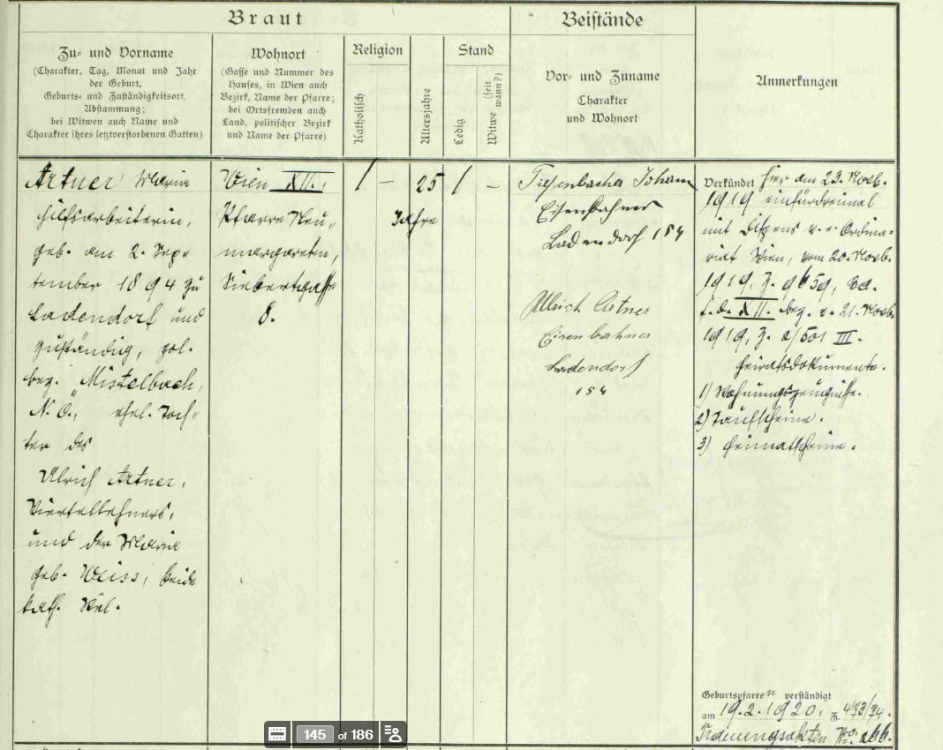 Braut
Beistände
Zu- und Vorname
(Charakter, Tag, Monat und Jahr
der Geburt,
Geburts- und Zuständigkeitsort,
Abstammung;
bei Witwen auch Name und
Charakter ihres letztverstorbenen Gatten)
Wohnort
(Gasse und Nummer des
Hauses, in Wien auch
Bezirk, Name der Pfarre;
bei Ortsfremden auch
Land, politischer Bezirk
und Name der Pfarre)
Religion
Katholisch
Altersjahre
Stand
Ledig
Witwe (seit
wann?)
Vor- und Zuname
Charakter
und Wohnort
Anmerkungen
Artner Maria
Hilfsarbeiterin,
geb. am 2. Sep-
tember 1894 zu
Ladendorf und
zuständig, pol.
bez. Mistelbach,
N. Ö., ehel. Toch-
ter des
Ulrich Artner,
Viertellehners,
und der Maria
geb. Weiss, beide
kath. Rel.
Wien XII.,
Pfarre Neu-
margareten,
Siebertgasse
8.
/ - 25 / -
Jahre
Tiefenbacher Johann
Eisenbahner
Ladendorf 154
Ullrich Artner
Eisenbahner
Ladendorf
154
Verkündet hier am 23. Novb.
1919 einfürdreimal
mit Dispens v. e. Ordina-
riat Wien, vom 20. Novb.
1919, Z. 9659,
XII. bez. v. 21. Novb.
1919, Z. a/501 III.
Heiratsdokumente.
1) Wohnungszeugnisse.
2) Taufscheine.
3) Heimatscheine.
Geburtspfarren verständigt
am 19.2.1920. Z. 493/94.
Trauungsakten No. 266.
145 of 186